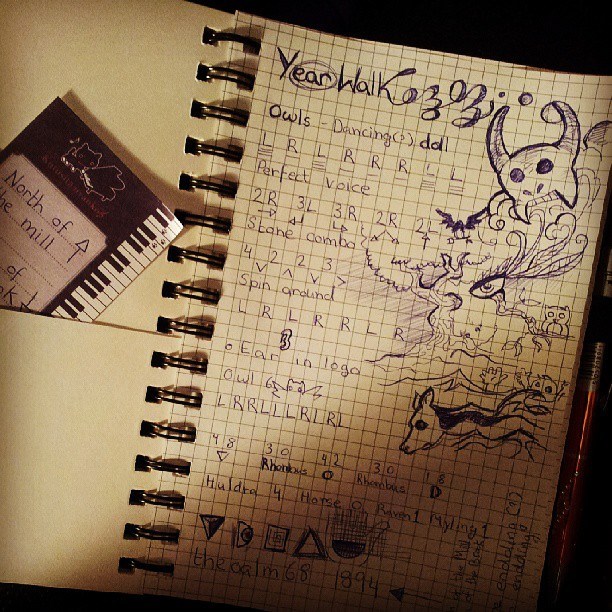 Year Walk
Owls - Dancing(?) doll
L R L R R R L L
Perfect voice
2R 3L 3R 2R 2L
Stone combo
4 2 2 3
Spin ground
L R L R R L R
3
Ear in logo
Owl 6
L R R L L L R L R L
48 30 42 30 18
Rhombus Rhombus
Huldra 4 Horse 0 Raven 1 Myling 1
thecalm68 1894
North of
the mill
of